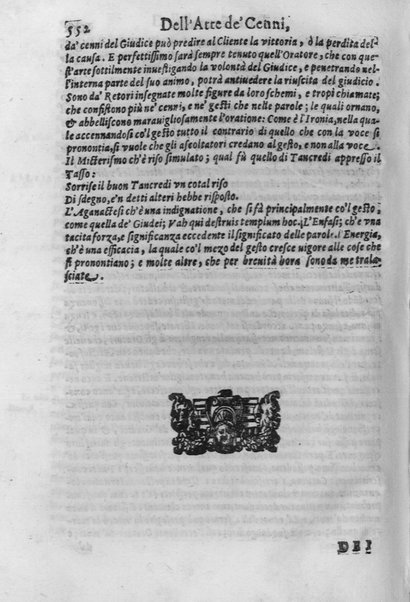 552 Dell'Arte de' Cenni,
da' cenni del Giudice può predire al Cliente la vittoria, ò la perdita del-
la causa. E perfettissimo sarà sempre tenuto quell'Oratore, che con que-
st'arte sottilmente inuestigando la volontà del Giudice, e penetrando nel-
l'interna parte del suo animo, potrà antiuedere la riuscita del giudicio.
Sono da' Retori insegnate molte figure da loro schemi, e tropi chiamate;
che consistono più ne' cenni, e ne' gesti che nelle parole; le quali ornano,
& abbelliscono marauigliosamente l'oratione: Come è l'Ironia, nella qua-
le accennandosi co'l gesto tutto il contrario di quello che con la voce si
prononcia, si vuole che gli ascoltatori credano al gesto, e non alla voce.
Il Micterismo ch'è riso simulato; qual fù quello di Tancredi appresso il
Tasso:
Sorrise il buon Tancredi vn cotal riso
Di sdegno, e'n detti alteri hebbe risposto.
L'Aganactesi ch'è una indignatione, che si fà principalmente co'l gesto,
come quella de' Giudei; Vah qui destruis templum hoc. L'Enfasi; ch'è vna
tacita forza, e significanza eccedente il significato delle parole. l'Energia,
ch'è una efficacia, la quale co'l mezo del gesto cresce uigore alle cose che
si prononciano; e molte altre, che per breuità hora sono da me trala-
sciate.
DEI